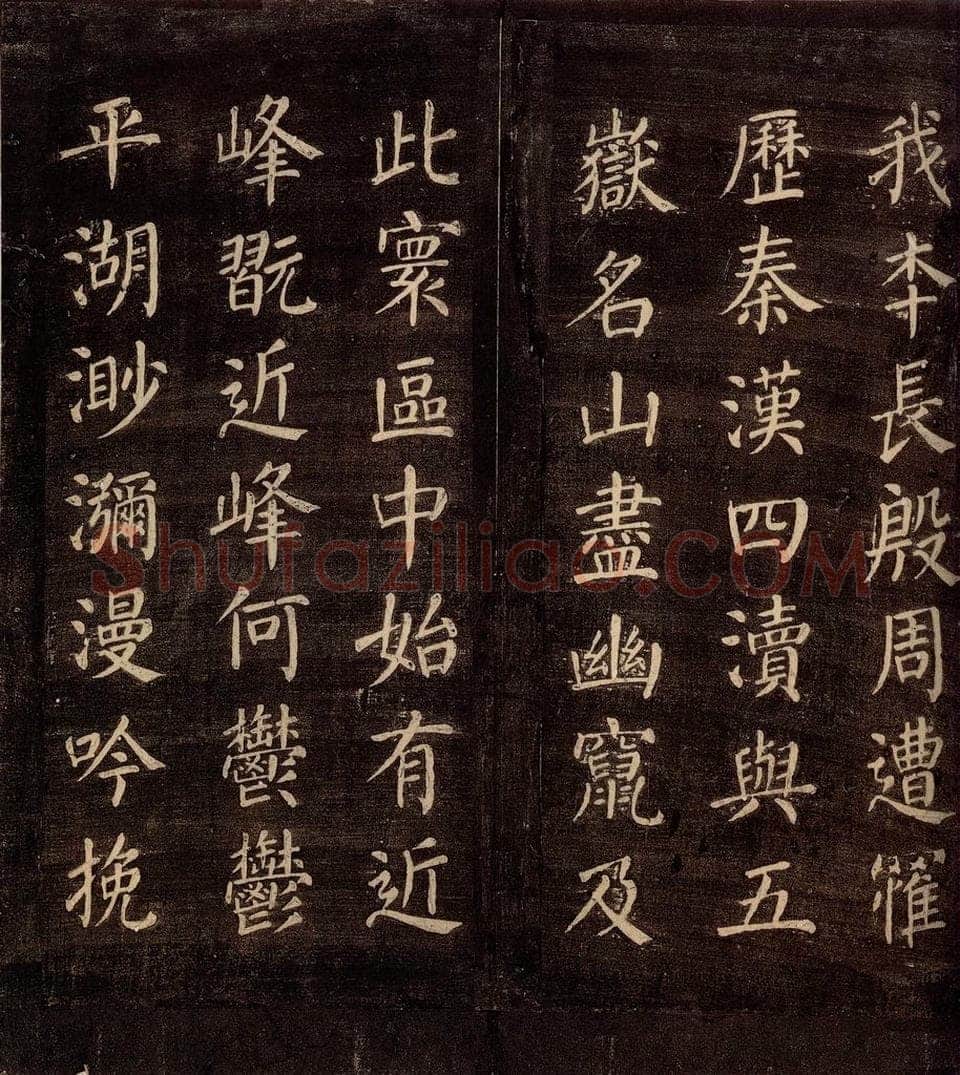 我本長殷周遭罹
歷秦漢四瀆與五
嶽名山盡幽竄及
此寰區中始有近
峰翫近峰何鬱鬱
平湖渺瀰漫吟挽
Shufaziliao.COM